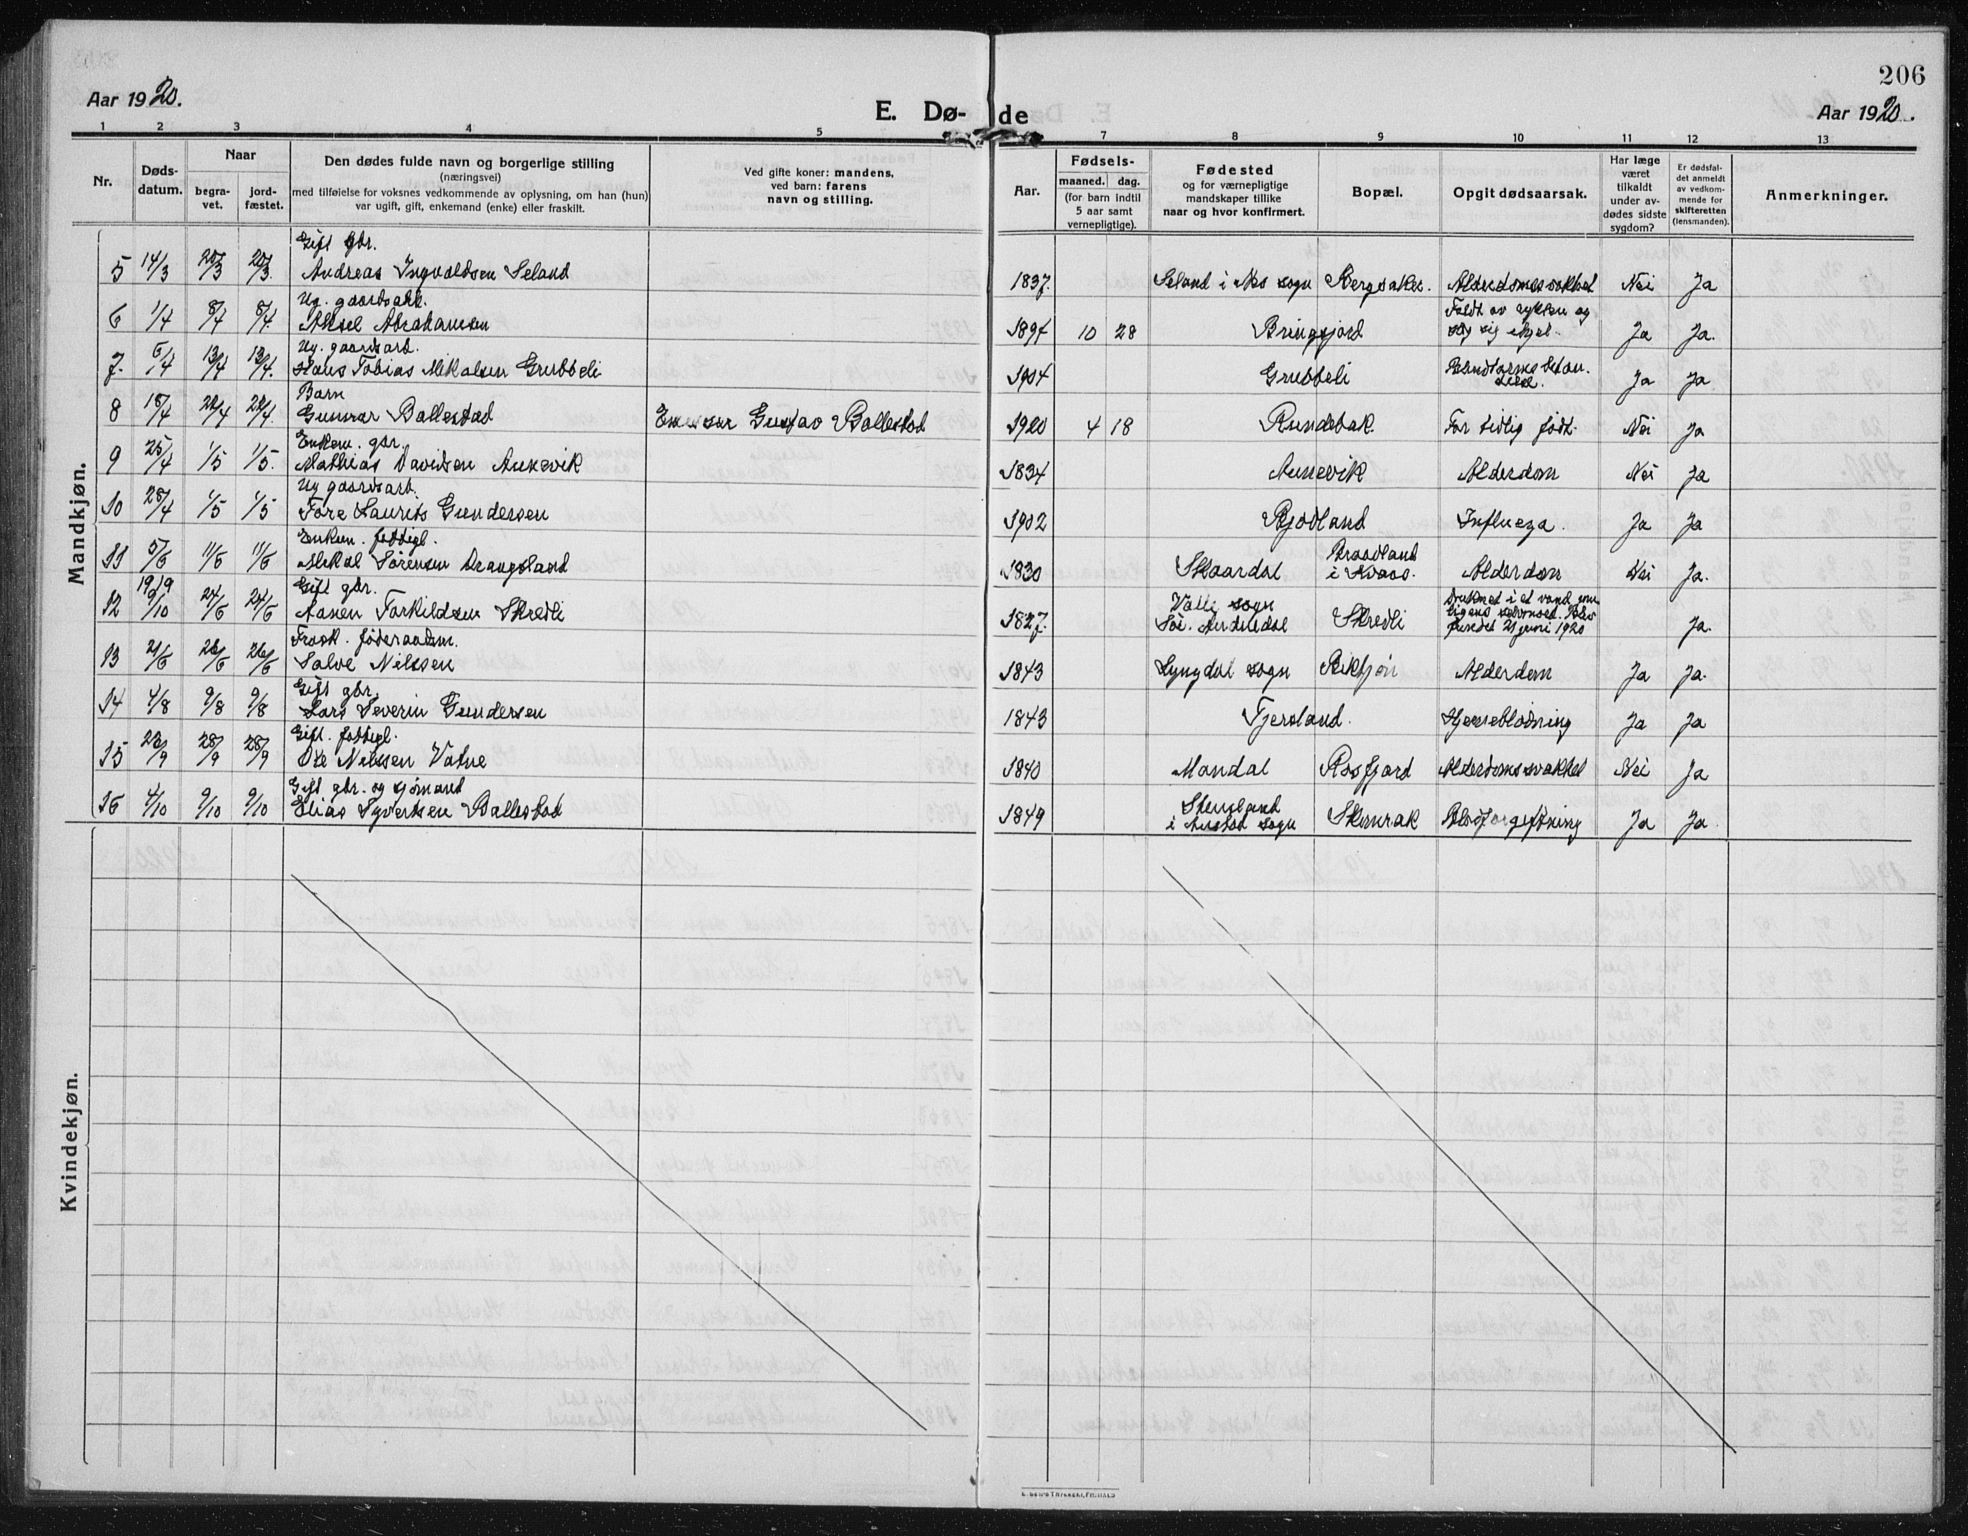 206
Aar 1920.
E. Døde
Aar 1920.
1 2 3 4 5 7 8 9 10 11 12 13
Nr.
Døds-
datum.
Naar
begra-
vet.
jord-
fæstet.
Den dødes fulde navn og borgerlige stilling
(næringsvei)
med tilføielse for voksnes vedkommende av oplysning, om han (hun)
var ugift, gift, enkemand (enke) eller fraskilt.
Ved gifte koner: mandens,
ved barn: farens
navn og stilling.
Aar.
Fødsels-
maaned. dag.
(for barn indtil
5 aar samt
vernepligtige).
Fødested
og for værnepligtige
mandskaper tillike
naar og hvor konfirmert.
Bopæl.
Opgit dødsaarsak.
Har læge
været
tilkaldt
under av-
dødes sidste
sygdom?
Er dødsfal-
det anmeldt
av vedkom-
mende for
skifteretten
(lensmanden).
Anmerkninger.
Mandkjøn.
Gift gbr.
5 14/3 20/3 20/3. Andreas Ingvaldsen Seland 1837. Seland i Nes sogn Bergsaker. Alderdomssvakhet Nei Ja
Ug. gaardsarb.
6 1/4 8/4 8/4. Aksel Abrahamsen 1897 10 28 Bringsjord Faldt av sykken og slog sig ihjel. Ja Ja.
Ug. gaardsarb.
7. 6/4 13/4 13/4. Hans Tobias Mikalsen Grubbeli 1904 Grubbeli Ja Ja
Barn
8 18/4 22/4 22/4. Gunnar Ballestad Gustav Ballestad 1920 4 18 Rundebak. For tidlig født. Nei Ja
Enkem. gbr.
9 25/4 1/5 1/5. Mathias Davidsen Aunevik 1834 Aunevik Alderdom Nei Ja
Ug gaardsarb.
10 28/4 1/5 1/5 Tore Laurits Gundersen 1902 Rjodland Influenza. Ja Ja
Enkem.føttigl.
11 5/6 11/6 11/6 Mikal Sørensen Drangsland 1830 Skaardal Braadland i Kvaas. Alderdom Nei Ja.
1919 Gift gbr.
12 9/10 24/6 24/6 Aanen Torkildsen Skredli 1827. Valle sogn Sør. Audnedal Skredli Druknet i et vand rimeligens selvmord. Blev fundet 21 juni 1920 Ja.
Frask. føderaadsm.
13 21/6 26/6 26/6 Salve Nilssen 1843 Lyngdal sogn Alderdom Ja Ja.
Gift gbr.
14 4/8 9/8 9/8 Lars Severin Gundersen 1843 Tjersland. Hjerneblødning Ja Ja
Gift. fattigl.
15 23/9 28/9 28/9 Ole Nilssen Vatne 1840 Mandal Rosfjord Alderdomssvakhet Nei Ja
Gift gbr. og sjømand
16 4/10 9/10 9/10 Elias Syvertsen Ballestad 1849 Stensland i Austad sogn Skomrak Blodforgiftning Ja Ja.
Kvindekjøn.